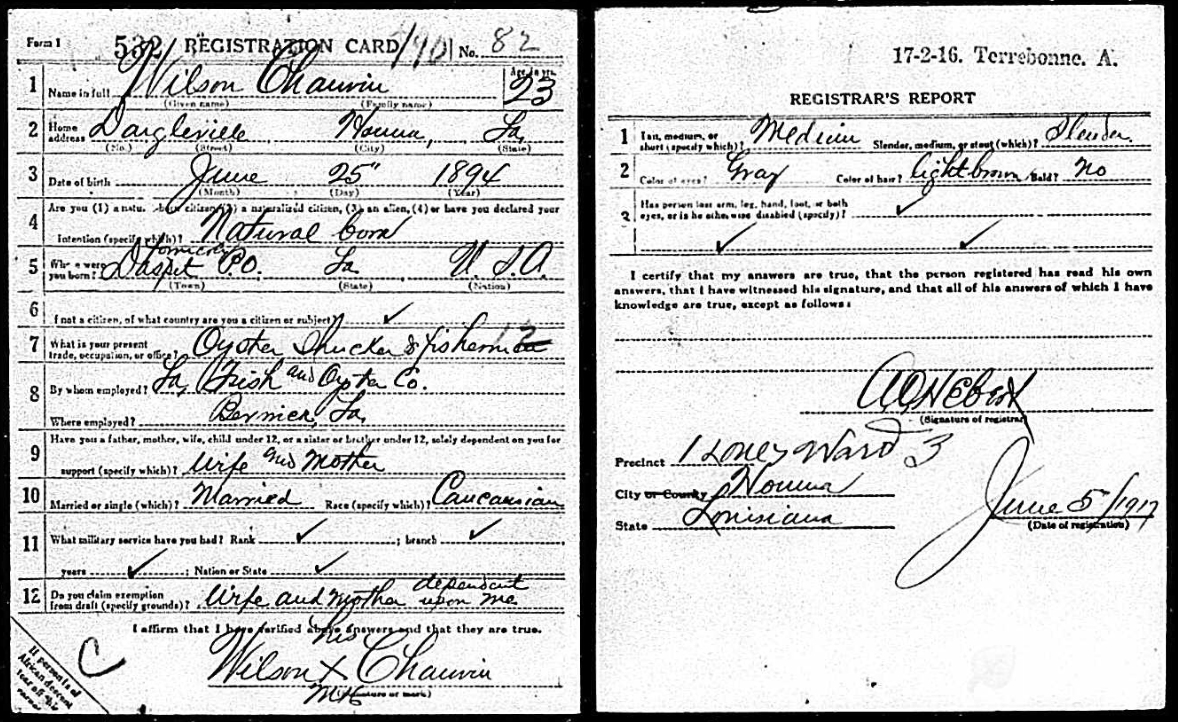 Form 1 532 REGISTRATION CARD 190 No. 82
1 Name in full Wilson Chauvin Age in yrs. 23
(Given name) (Family name)
2 Home address Daigleville Houma, La
(No.) (Street) (City) (State)
3 Date of birth June 25" 1894
(Month) (Day) (Year)
4 Are you (1) a natural-born citizen, (2) a naturalized citizen, (3) an alien, (4) or have you declared your
intention (specify which)? Natural born
5 Where were you born? Daspit P.O. La U.S.A.
(Town) (State) (Nation)
6 If not a citizen, of what country are you a citizen or subject?
7 What is your present trade, occupation, or office? Oyster Shucker & fisherman
8 By whom employed? La, Fish and Oyster Co.
Where employed? Berwick, La,
9 Have you a father, mother, wife, child under 12, or a sister or brother under 12, solely dependent on you for
support (specify which)? Wife and Mother
10 Married or single (which)? Married Race (specify which)? Caucausian
11 What military service have you had? Rank ; branch ;
years ; Nation or State
12 Do you claim exemption from draft (specify grounds)? Wife and Mother dependent upon me
I affirm that I have verified above answers and that they are true.
his
Wilson X Chauvin
(Signature or mark)
C
If person is of African descent tear off this corner
17-2-16. Terrebonne. A.
REGISTRAR'S REPORT
1 Tall, medium, or short (specify which)? Medium Slender, medium, or stout (which)? Slender
2 Color of eyes? Gray Color of hair? light brown Bald? No
3 Has person lost arm, leg, hand, foot, or both
eyes, or is he otherwise disabled (specify)?
I certify that my answers are true, that the person registered has read his own
answers, that I have witnessed his signature, and that all of his answers of which I have
knowledge are true, except as follows:
(Signature of registrar)
Precinct 1 Ward 3
City or County Houma
State Louisiana
June 5/1917
(Date of registration)